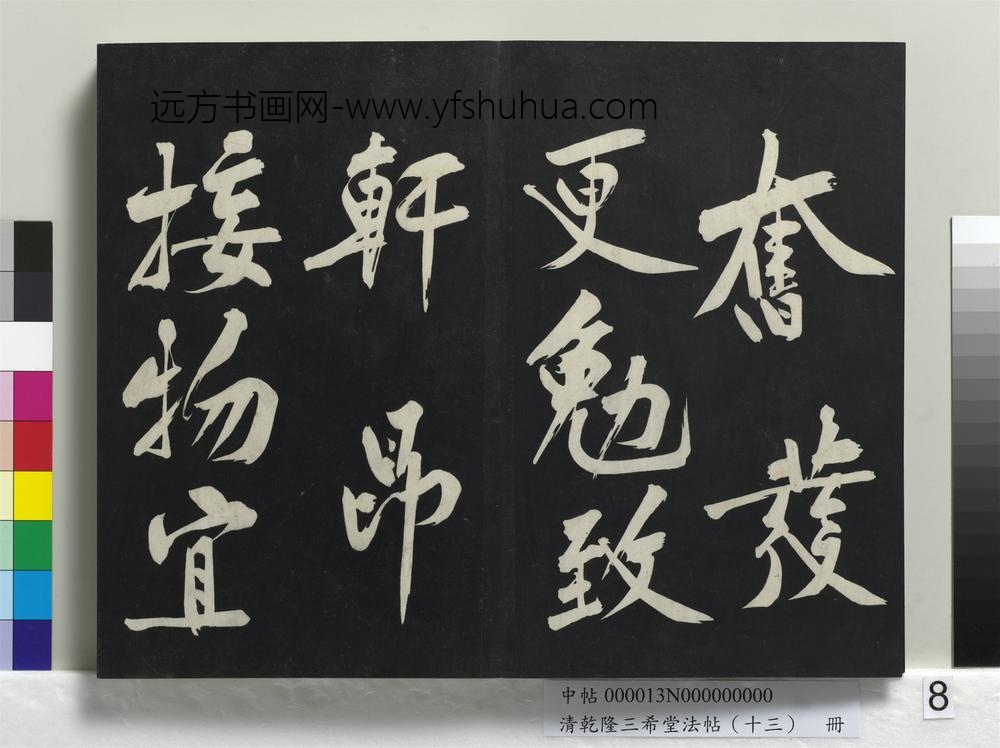 远方书画网-www.yfshuhua.com
奮發
更勉致
軒昂
接物宜
中帖 000013N000000000
清乾隆三希堂法帖（十三） 冊
8